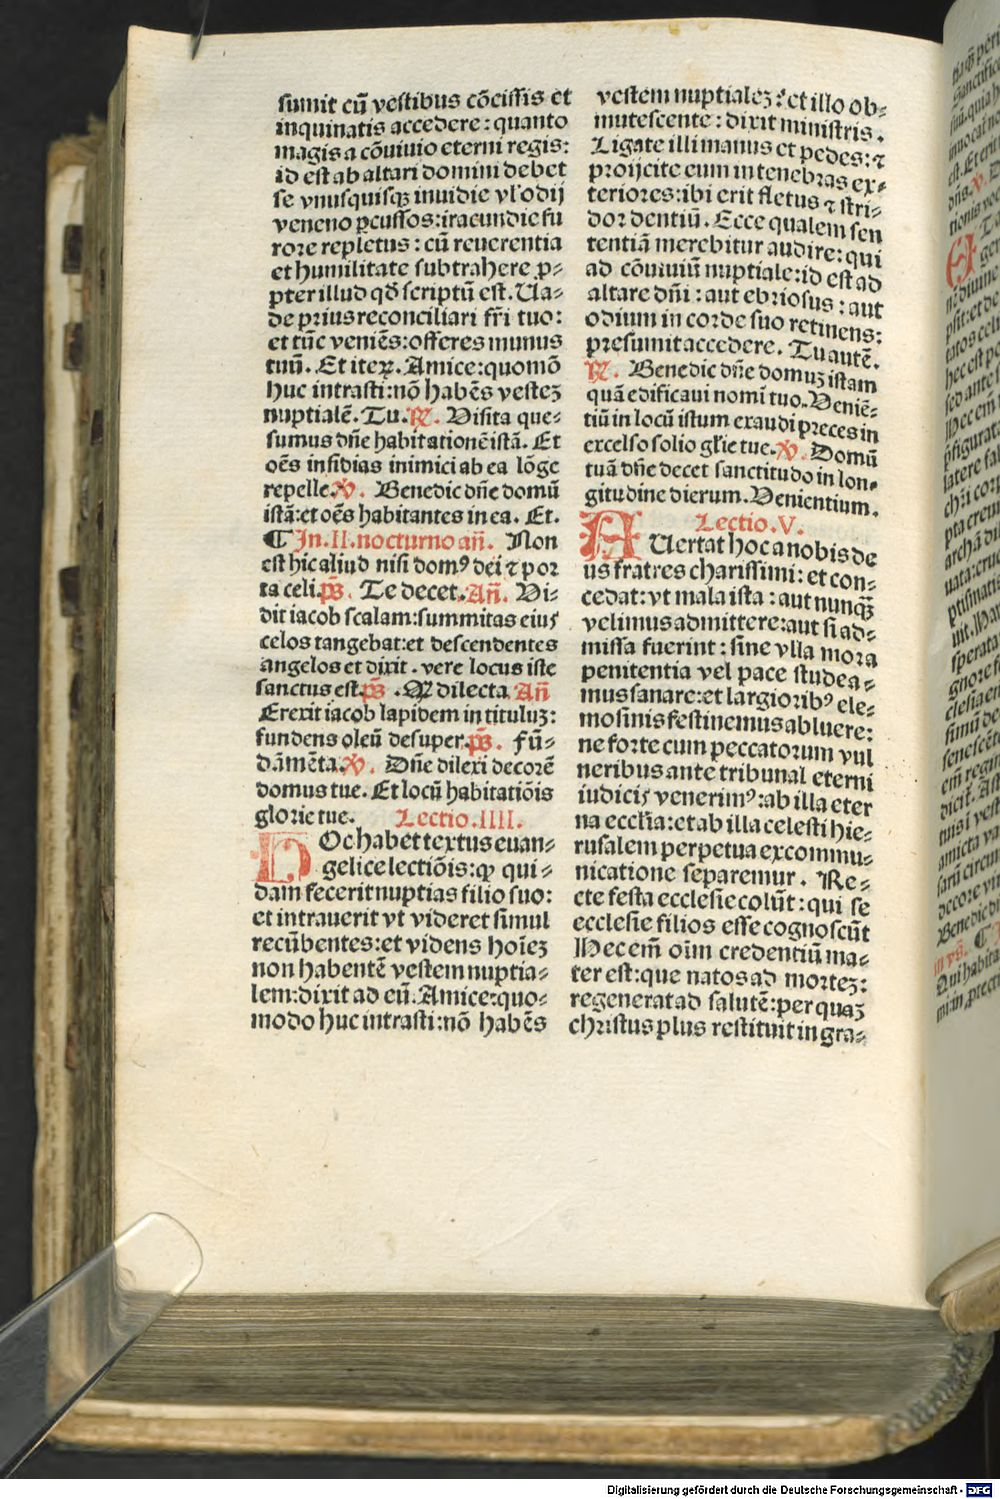 sumit cū vestibus cōcissis et
inquinatis accedere: quanto
magis a cōuiuio eterni regis:
id est ab altari domini debet
se vnusquisqꝫ inuidie vl̓ odij
veneno ꝑcussos: iracundie fu
rore repletus: cū reuerentia
et humilitate subtrahere ꝓ-
pter illud qd̄ scriptū est. Ua-
de prius reconciliari fr̄i tuo:
et tūc veniēs: offeres munus
tuū. Et iteꝝ. Amice: quomō
huc intrasti: nō habēs vesteꝫ
nuptialē. Tu. ℟. Visita que-
sumus dn̄e habitationē istā. Et
oēs insidias inimici ab ea lōge
repelle. ℣. Benedic dn̄e domū
istā: et oēs habitantes in ea. Et.
¶ In. II. nocturno an̄. Non
est hic aliud nisi domꝰ dei ⁊ por
ta celi. p̄s. Te decet. An̄. Vi-
dit iacob scalam: summitas eius
celos tangebat: et descendentes
angelos et dixit. vere locus iste
sanctus est. p̄s. Q̄ dilecta An̄
Erexit iacob lapidem in tituluꝫ:
fundens oleū desuper. p̄s. fū-
dāmēta. ℣. Dn̄e dilexi decorē
domus tue. Et locū habitatiōis
glorie tue. Lectio. IIII.
HOc habet textus euan-
gelice lectiōis: ꝙ qui-
dam fecerit nuptias filio suo:
et intrauerit vt videret simul
recūbentes: et videns hoīeꝫ
non habentē vestem nuptia-
lem: dixit ad eū. Amice: quo-
modo huc intrasti: nō habēs
vestem nuptialeꝫ: et illo ob-
mutescente: dixit ministris.
Ligate illi manus et pedes: ⁊
proijcite eum in tenebras ex-
teriores: ibi erit fletus ⁊ stri-
dor dentiū. Ecce qualem sen
tentiā merebitur audire: qui
ad cōuiuiū nuptiale: id est ad
altare dn̄i: aut ebriosus: aut
odium in corde suo retinens:
presumit accedere. Tu autē.
℟. Benedic dn̄e domuꝫ istam
quā edificaui nomi tuo. Veniē-
tiū in locū istum exaudi preces in
excelso solio gl̓ie tue. ℣. Domū
tuā dn̄e decet sanctitudo in lon-
gitudine dierum. Venientium.
Lectio. V.
AUertat hoc a nobis de
us fratres charissimi: et con-
cedat: vt mala ista: aut nunqꝫ
velimus admittere: aut si ad-
missa fuerint: sine vlla mora
penitentia vel pace studea-
mus sanare: et largioribꝰ ele-
mosinis festinemus abluere:
ne forte cum peccatorum vul
neribus ante tribunal eterni
iudicis venerimꝰ: ab illa eter
na eccl̓ia: et ab illa celesti hie-
rusalem perpetua excommu-
nicatione separemur. Re-
cte festa ecclesie colūt: qui se
ecclesie filios esse cognoscūt
Hec em̄ oīm credentiū ma-
ter est: que natos ad morteꝫ:
regenerat ad salutē: per quaꝫ
christus plus restituit in gra-
Digitalisierung gefördert durch die Deutsche Forschungsgemeinschaft - DFG